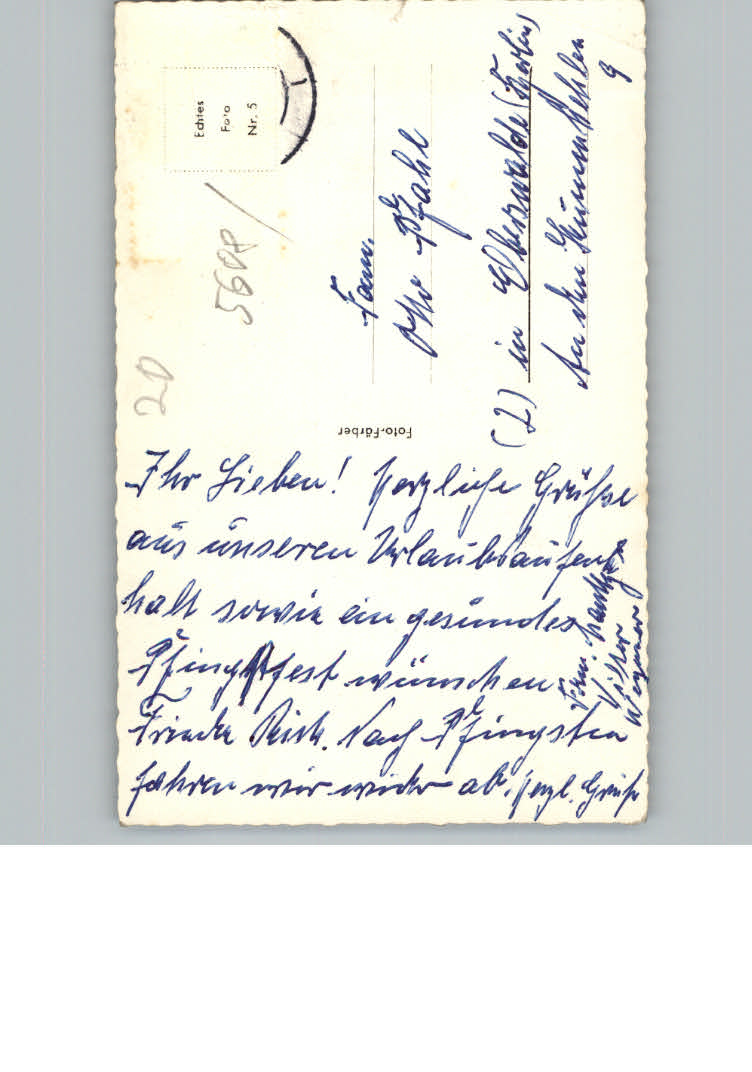 Echtes
Foto
Nr. 5
5688
2D
Foto-Färber
Fam.
Otto Pfahl
(2) in Eberswalde (Berlin)
An den
9
Ihr Lieben! Herzliche Grüße
aus unseren Urlaubsaufent
halt sowie ein gesundes
Pfingstfest wünschen
Frieda Rich. Nach Pfingsten
fahren wir wieder ab. Herzl. Grüße
Fam.